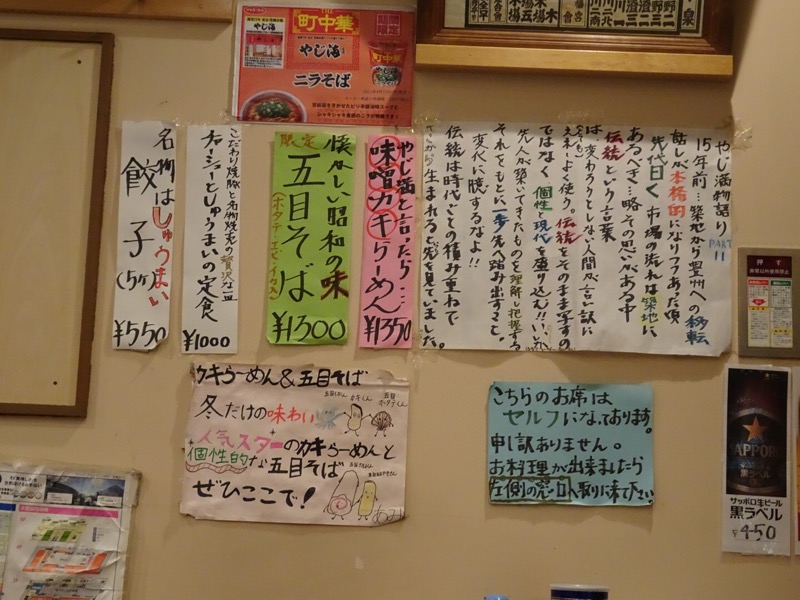 町中華
やじ満
ニラそば
やじ満物語り PART 11
15年前…築地から豊洲への移転
話しが本格的になりつつあった頃
先代曰く市場の流れは築地に
あるべき…略その思いがある中
伝統という言葉
は変わろうとしない人間が言い訳に
うえでよく使う。伝統をそのまま写すの
ではなく個性と現代を盛り込む!!
先人が築いてきたものを理解し把握する
それをもとに一歩先へ踏み出すこと。
変化に臆するなよ!!
伝統は時代ごとの積み重ねで
生まれると
を見ていました。
やじ満と言ったら…
味噌カキらーめん
¥1350
懐かしい昭和の味
限定 五目そば
(ホタテ・エビ・イカ入)
¥1300
こだわり焼豚と名物焼売の贅沢な一皿
チャーシューとしゅうまいの定食
¥1000
名物はしゅうまい
餃子(5ケ)
¥550
カキらーめん&五目そば
冬だけの味わい
人気スターのカキらーめんと
個性的な五目そば
ぜひここで!
あみ
こちらのお席は
セルフになっております。
申し訳ありません。
お料理が出来ましたら
左側の窓口へ取りに来て下さい
押す
SAPPORO
サッポロ生ビール
黒ラベル
¥450